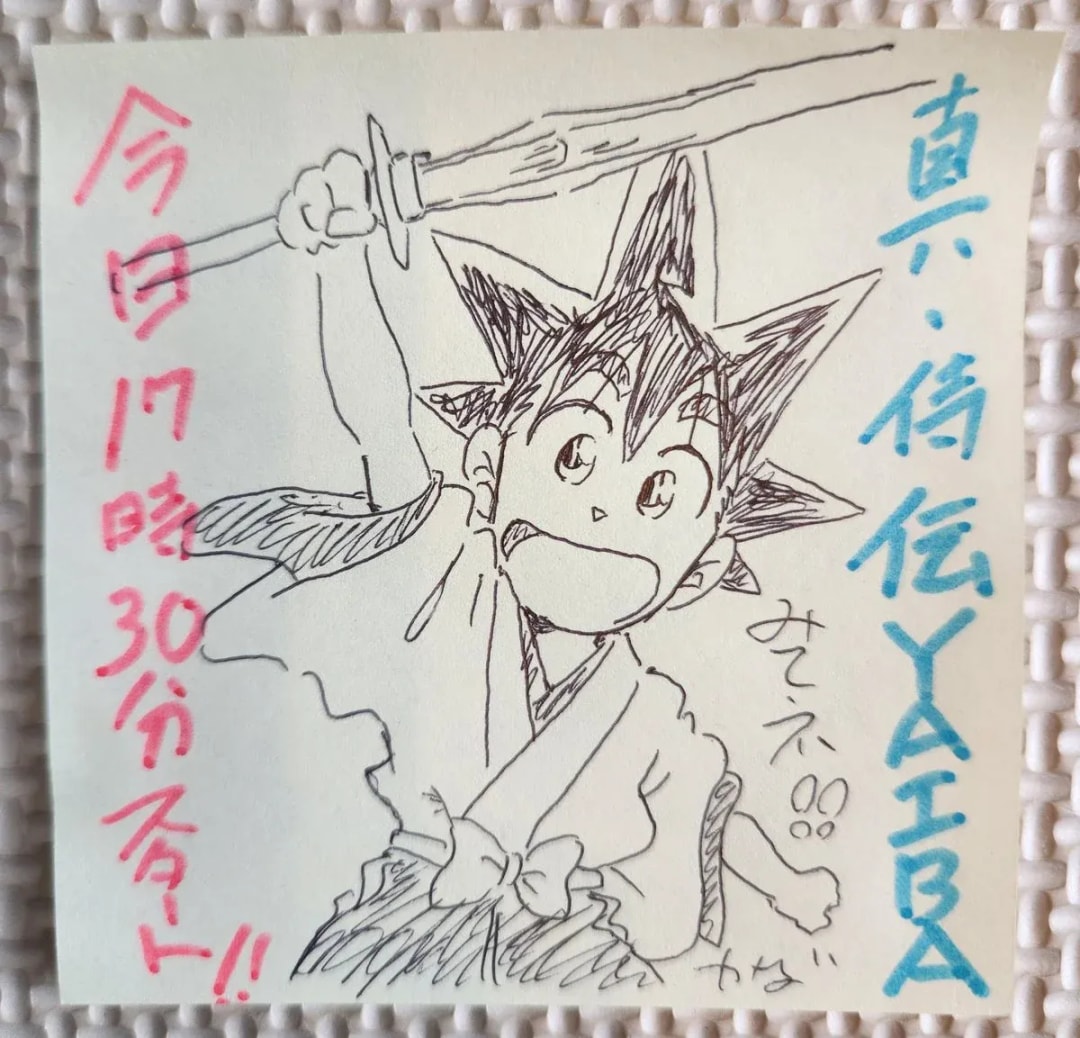 真・侍伝YAIBA
みてネ!!
今日17時30分スタート!!